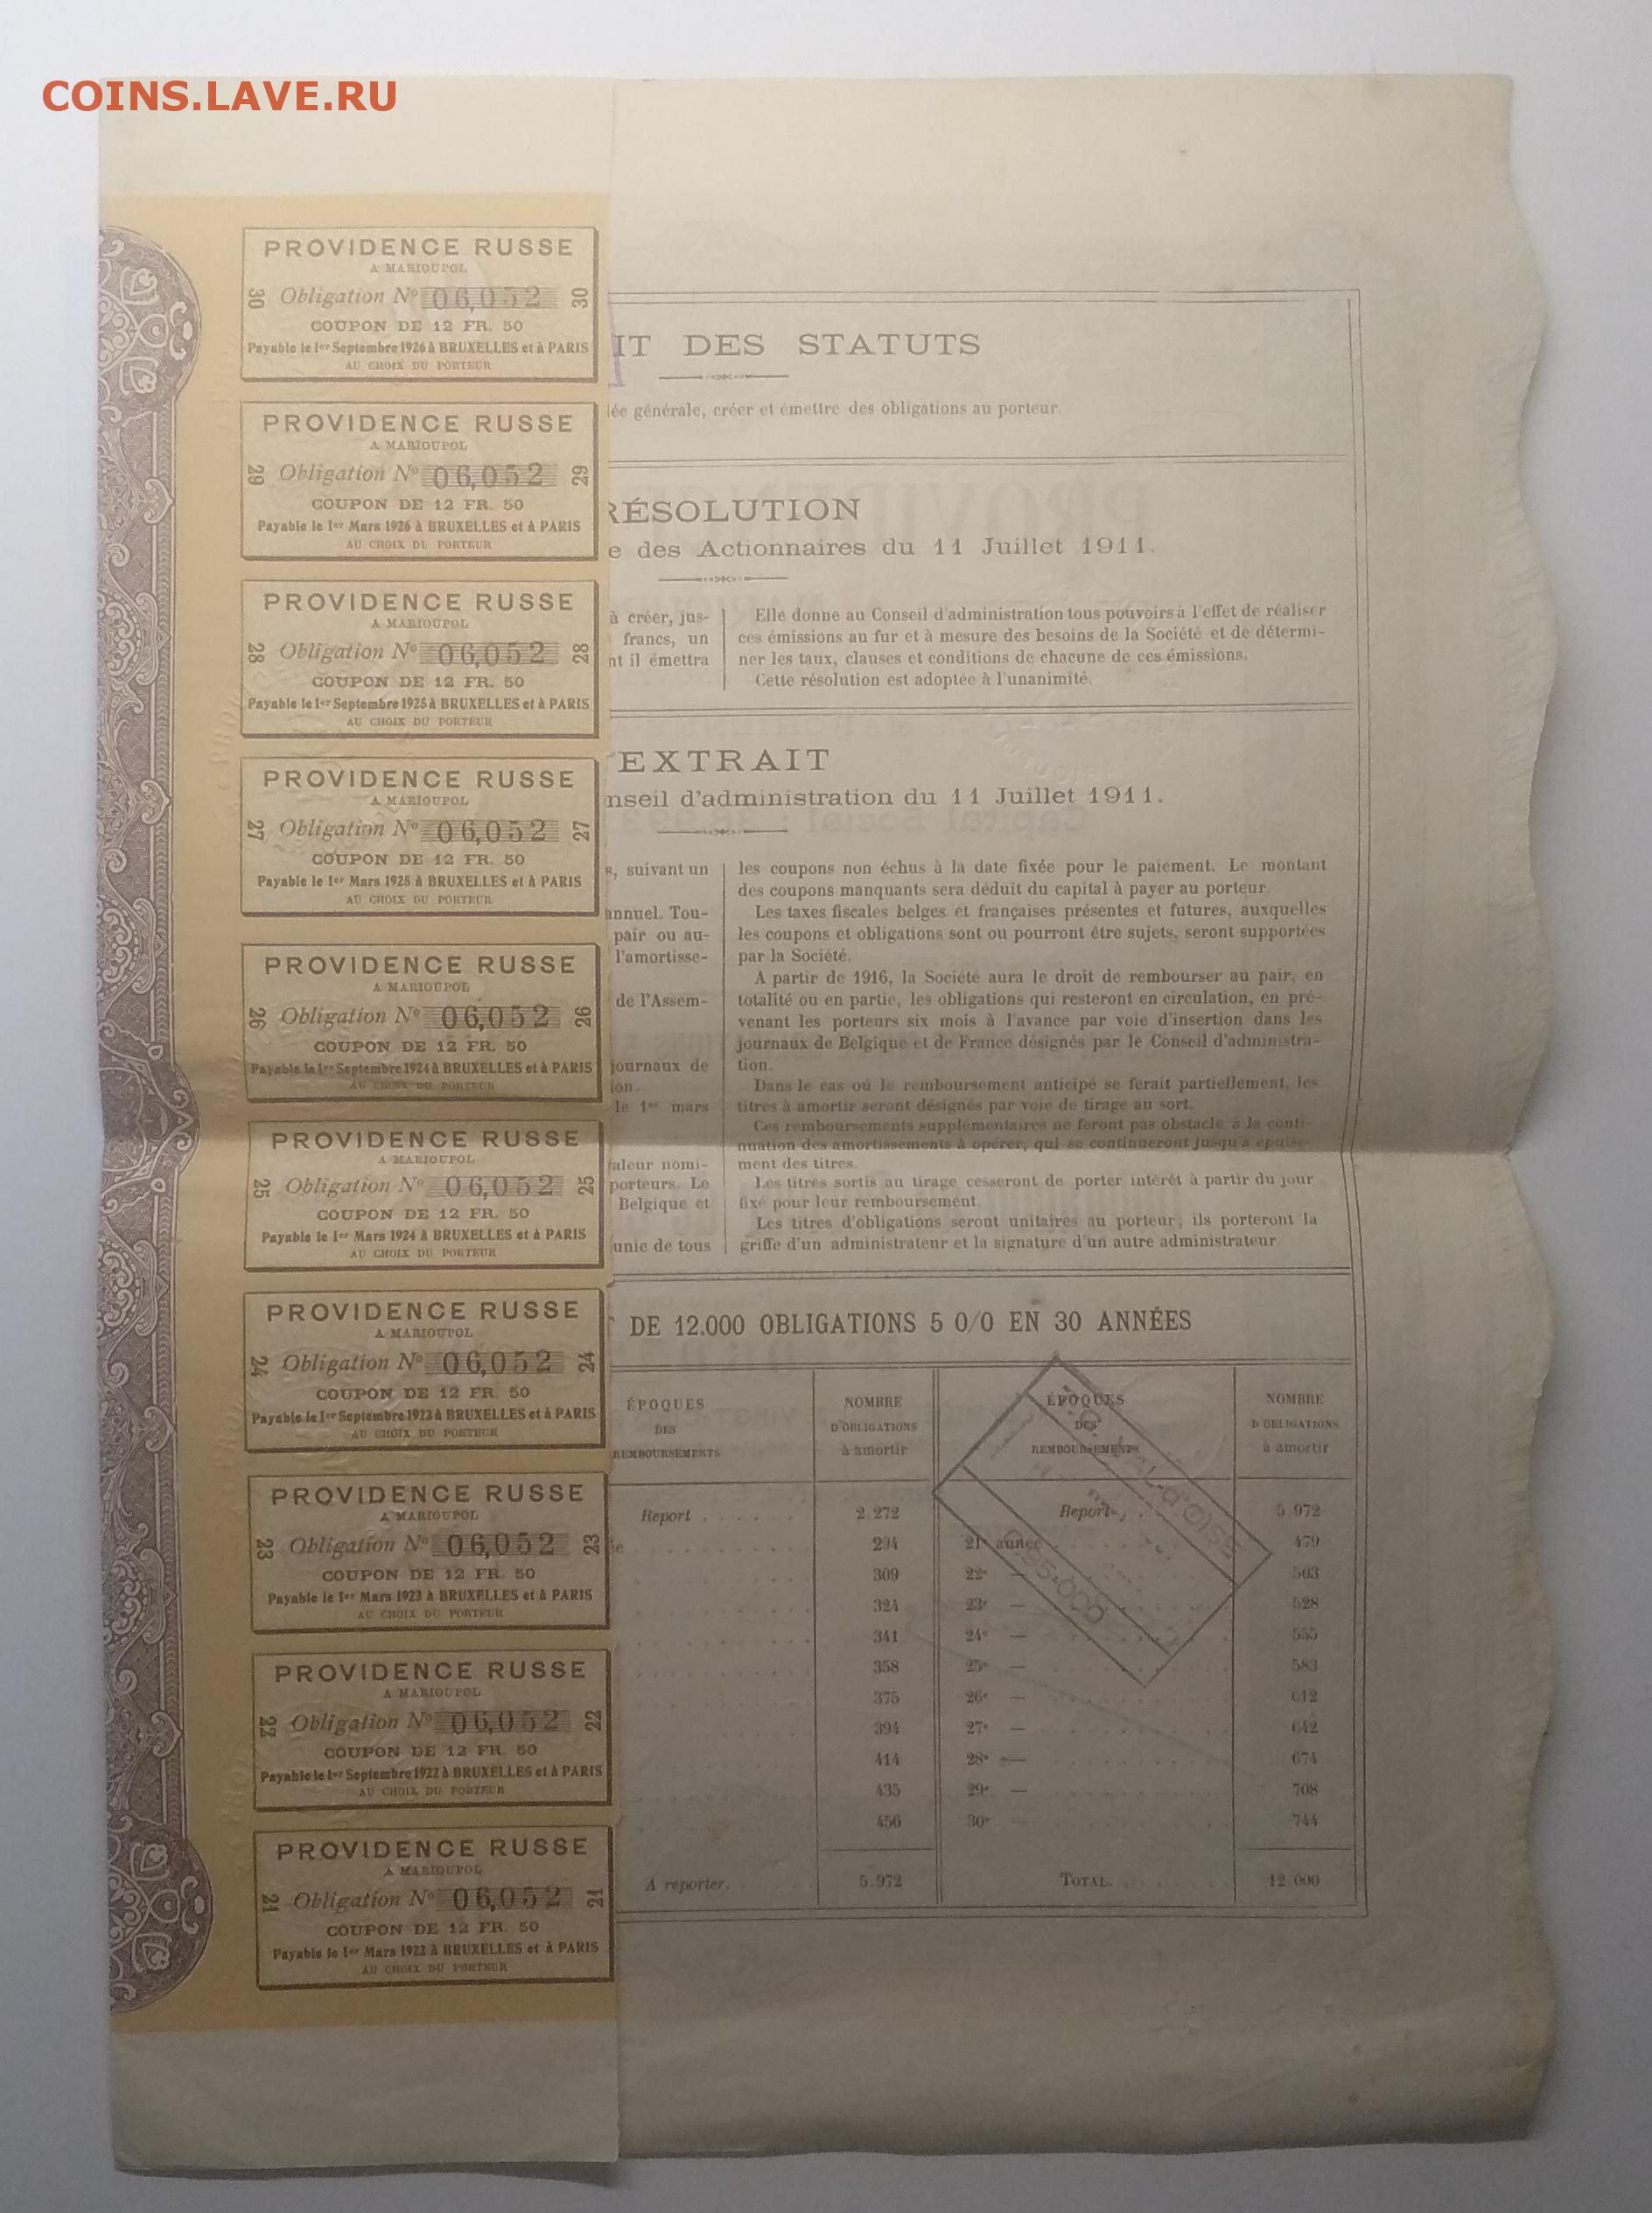 COINS.LAVE.RU
PROVIDENCE RUSSE
A MARIOUPOL
30 Obligation No 06,052 30
COUPON DE 12 FR. 50
Payable le 1er Septembre 1926 à BRUXELLES et à PARIS
AU CHOIX DU PORTEUR
PROVIDENCE RUSSE
A MARIOUPOL
29 Obligation No 06,052 29
COUPON DE 12 FR. 50
Payable le 1er Mars 1926 à BRUXELLES et à PARIS
AU CHOIX DU PORTEUR
PROVIDENCE RUSSE
A MARIOUPOL
28 Obligation No 06,052 28
COUPON DE 12 FR. 50
Payable le 1er Septembre 1925 à BRUXELLES et à PARIS
AU CHOIX DU PORTEUR
PROVIDENCE RUSSE
A MARIOUPOL
27 Obligation No 06,052 27
COUPON DE 12 FR. 50
Payable le 1er Mars 1925 à BRUXELLES et à PARIS
AU CHOIX DU PORTEUR
PROVIDENCE RUSSE
A MARIOUPOL
26 Obligation No 06,052 26
COUPON DE 12 FR. 50
Payable le 1er Septembre 1924 à BRUXELLES et à PARIS
AU CHOIX DU PORTEUR
PROVIDENCE RUSSE
A MARIOUPOL
25 Obligation No 06,052 25
COUPON DE 12 FR. 50
Payable le 1er Mars 1924 à BRUXELLES et à PARIS
AU CHOIX DU PORTEUR
PROVIDENCE RUSSE
A MARIOUPOL
24 Obligation No 06,052 24
COUPON DE 12 FR. 50
Payable le 1er Septembre 1923 à BRUXELLES et à PARIS
AU CHOIX DU PORTEUR
PROVIDENCE RUSSE
A MARIOUPOL
23 Obligation No 06,052 23
COUPON DE 12 FR. 50
Payable le 1er Mars 1923 à BRUXELLES et à PARIS
AU CHOIX DU PORTEUR
PROVIDENCE RUSSE
A MARIOUPOL
22 Obligation No 06,052 22
COUPON DE 12 FR. 50
Payable le 1er Septembre 1922 à BRUXELLES et à PARIS
AU CHOIX DU PORTEUR
PROVIDENCE RUSSE
A MARIOUPOL
21 Obligation No 06,052 21
COUPON DE 12 FR. 50
Payable le 1er Mars 1922 à BRUXELLES et à PARIS
AU CHOIX DU PORTEUR
IT DES STATUTS
lée générale, créer et émettre des obligations au porteur.
RÉSOLUTION
e des Actionnaires du 11 Juillet 1911.
à créer, jus-
francs, un
nt il émettra
Elle donne au Conseil d'administration tous pouvoirs à l'effet de réaliser
ces émissions au fur et à mesure des besoins de la Société et de détermi-
ner les taux, clauses et conditions de chacune de ces émissions.
Cette résolution est adoptée à l'unanimité.
EXTRAIT
nseil d'administration du 11 Juillet 1911.
s, suivant un
annuel. Tou-
pair ou au-
l'amortisse-
de l'Assem-
journaux de
ion.
le 1er mars
valeur nomi-
porteurs. Le
Belgique et
unie de tous
les coupons non échus à la date fixée pour le paiement. Le montant
des coupons manquants sera déduit du capital à payer au porteur.
Les taxes fiscales belges et françaises présentes et futures, auxquelles
les coupons et obligations sont ou pourront être sujets, seront supportées
par la Société.
A partir de 1916, la Société aura le droit de rembourser au pair, en
totalité ou en partie, les obligations qui resteront en circulation, en pré-
venant les porteurs six mois à l'avance par voie d'insertion dans les
journaux de Belgique et de France désignés par le Conseil d'administra-
tion.
Dans le cas où le remboursement anticipé se ferait partiellement, les
titres à amortir seront désignés par voie de tirage au sort.
Ces remboursements supplémentaires ne feront pas obstacle à la conti-
nuation des amortissements à opérer, qui se continueront jusqu'à épuise-
ment des titres.
Les titres sortis au tirage cesseront de porter intérêt à partir du jour
fixé pour leur remboursement.
Les titres d'obligations seront unitaires au porteur; ils porteront la
griffe d'un administrateur et la signature d'un autre administrateur
DE 12.000 OBLIGATIONS 5 0/0 EN 30 ANNÉES
ÉPOQUES DES REMBOURSEMENTS
NOMBRE D'OBLIGATIONS à amortir
ÉPOQUES DES REMBOURSEMENTS
NOMBRE D'OBLIGATIONS à amortir
Report 2.272 Report 5.972
e 294 21e année 479
309 22e — 503
324 23e — 528
341 24e — 555
358 25e — 583
375 26e — 612
394 27e — 642
414 28e — 674
435 29e — 708
456 30e — 744
A reporter. 5.972 TOTAL. 12.000
VAL-d'OISE